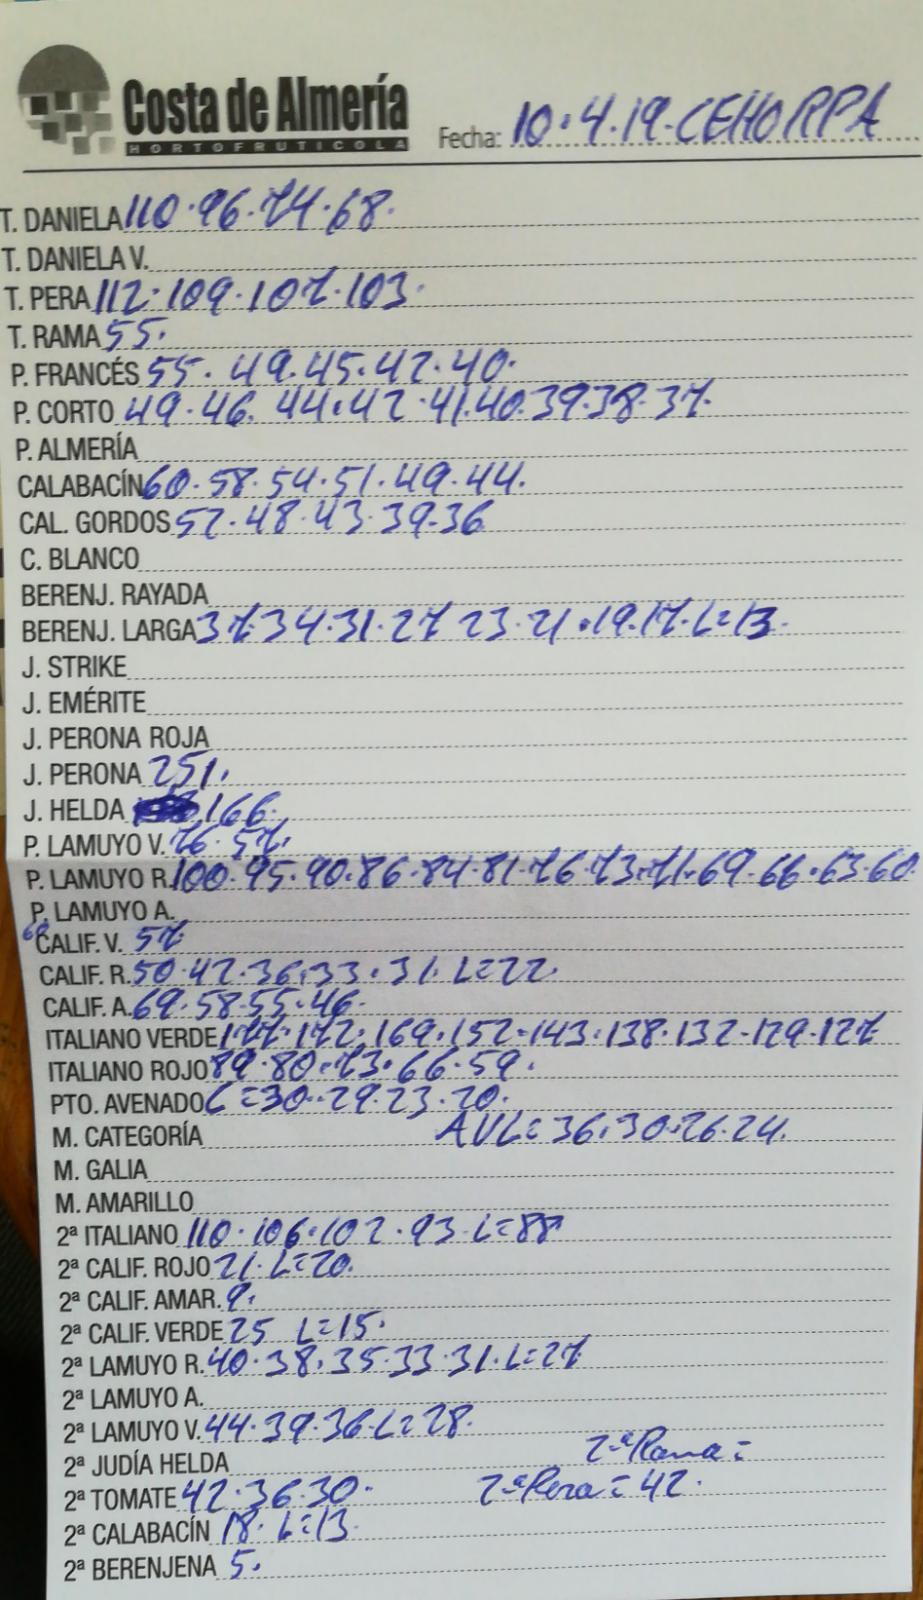 Costa de Almería
HORTOFRUTICOLA
Fecha: 10.4.19.CEHORPA
T. DANIELA 110.96.74.68.
T. DANIELA V.
T. PERA 112.109.107.103.
T. RAMA 55.
P. FRANCÉS 55. 49.45.42.40.
P. CORTO 49.46. 44.42.41.40.39.38.37.
P. ALMERÍA
CALABACÍN 60.58.54.51.49.44.
CAL. GORDOS 52.48.43.39.36
C. BLANCO
BERENJ. RAYADA
BERENJ. LARGA 37 34.31.27 23.21.19.17.L=13.
J. STRIKE
J. EMÉRITE
J. PERONA ROJA
J. PERONA 251.
J. HELDA 166.
P. LAMUYO V. 76.57.
P. LAMUYO R. 100.95.90.86.84.81.76.73.71.69.66.63.60
P. LAMUYO A.
CALIF. V. 57
CALIF. R. 50.42.36.33.31. L=22.
CALIF. A. 69.58.55.46.
ITALIANO VERDE 177.172.169.152.143.138.132.129.127
ITALIANO ROJO 89.80.73.66.59.
PTO. AVENADO L=30.29.23.20.
M. CATEGORÍA AVL=36.30.26.24.
M. GALIA
M. AMARILLO
2ª ITALIANO 110.106.102.93.L=88
2ª CALIF. ROJO 21. L=20.
2ª CALIF. AMAR. 9.
2ª CALIF. VERDE 25 L=15.
2ª LAMUYO R. 40.38.35.33.31.L=27
2ª LAMUYO A.
2ª LAMUYO V. 44.39.36.L=28.
2ª JUDÍA HELDA 2ªRama=
2ª TOMATE 42.36.30. 2ªPera=42.
2ª CALABACÍN 18. L=13.
2ª BERENJENA 5.